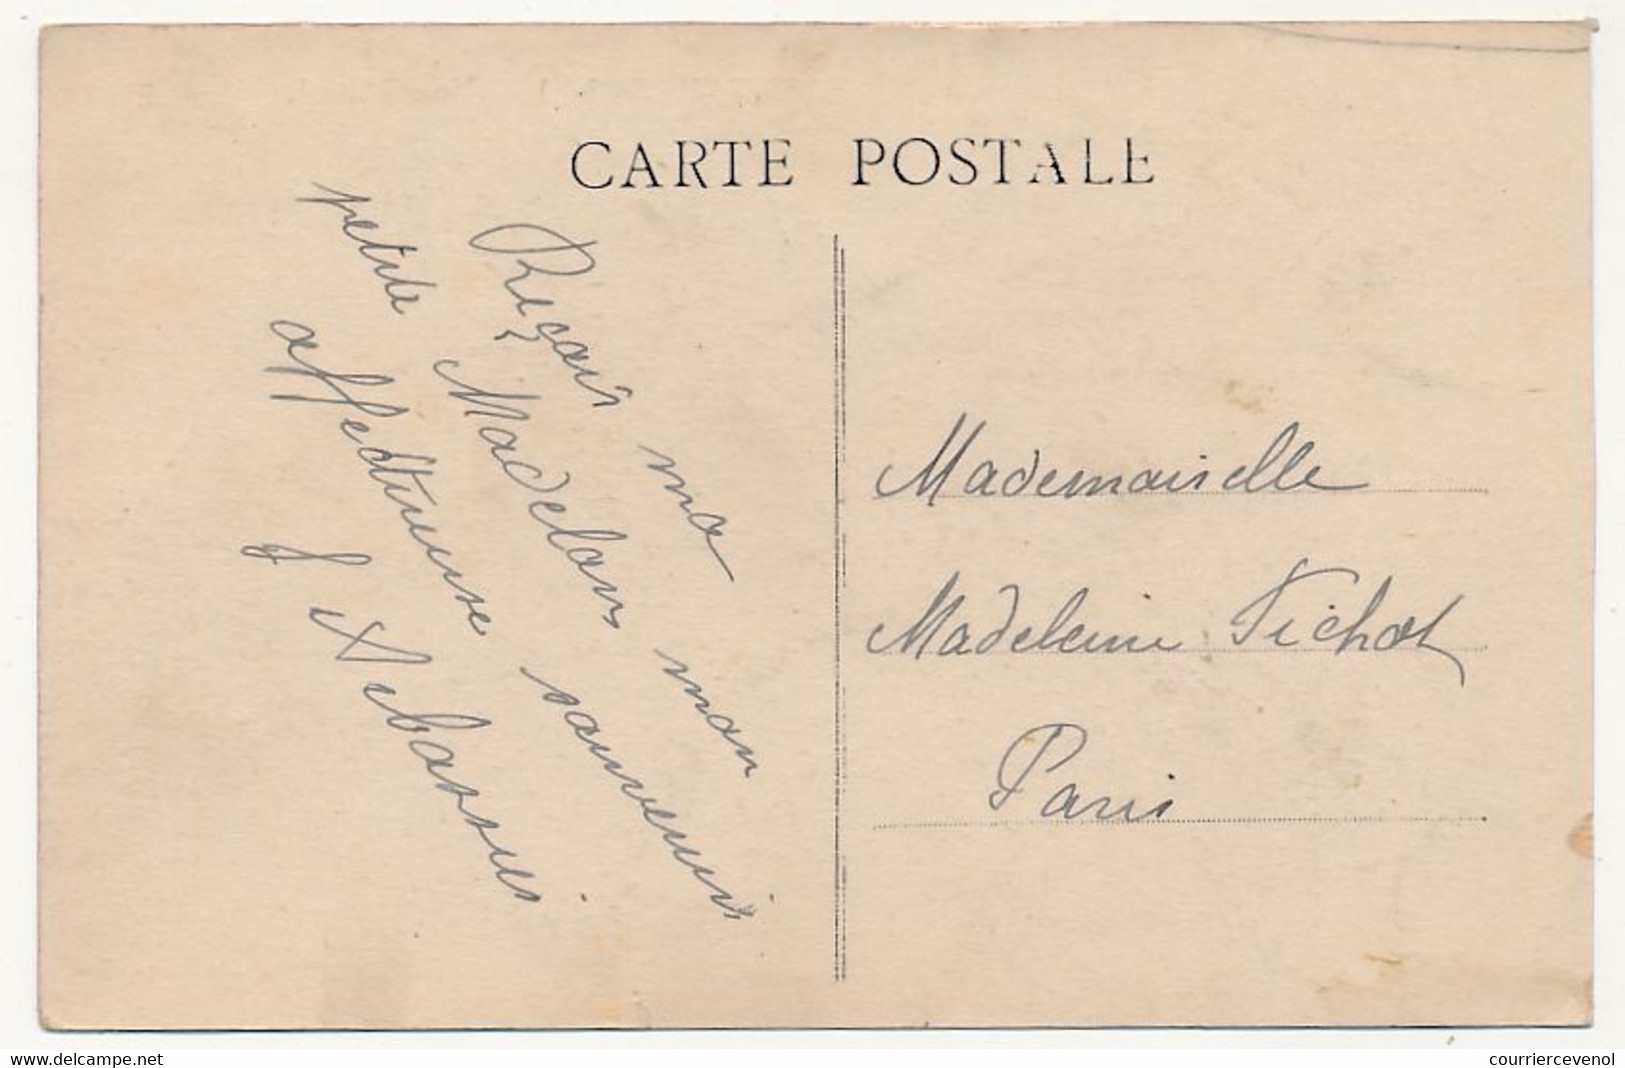 CARTE POSTALE
Reçois ma
petite Madelon mon
affectueuse souvenir
J Debassus
Mademoiselle
Madeleine Fichot
Paris
www.delcampe.net
courriercevenol